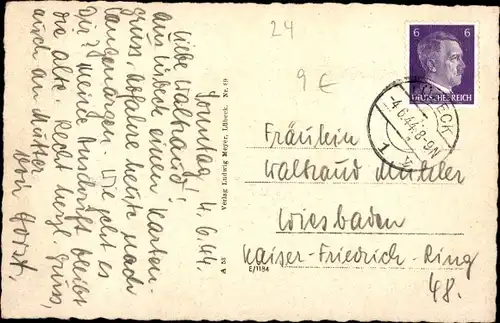 Sonntag 4.6.44.
Liebe Waltraud!
Aus Lübeck einen Karten-
gruss, fahre heute nach
Wie geht es
Dir? Meine Anschrift bleibt
die alte. Recht herzl. Gruss,
auch an Mutter
von Horst.
Verlag Ludwig Meyer, Lübeck. Nr. 59
A 53
E/1184
24
9 €
6 6
DEUTSCHES REICH
LÜBECK
4.6.44.8-9N
1
Fräulein
Waltraud
Wiesbaden
Kaiser-Friedrich-Ring
48.